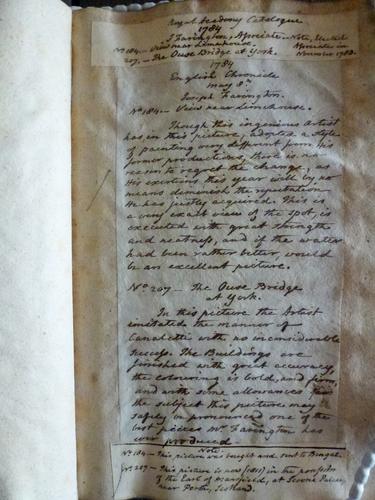 Royal Academy Catalogue
1784
J Farington, Associate - Note, Elected
No 184. - View near Limehouse. Associate in
207. - The Ouse Bridge at York. November 1783.
1784
English Chronicle
May 8th.
Joseph Farington.
No 184. - View near Limehouse.
Though this ingenious Artist
has, in this picture, adopted a style
of painting very different from his
former productions, there is no
reason to regret the change, as
His exertions this year will by no
means diminish the reputation
He has justly acquired. This is
a very exact view of the spot, is
executed with great strength
and neatness, and if the water
had been rather better would
be an excellent picture.
No 207 - The Ouse Bridge
at York.
In this picture the Artist
imitated the manner of
Canaletti with no inconsiderable
success. The Buildings are
finished with great accuracy,
the colouring is bold, and firm,
and with some allowances for
the subject this picture may
safely be pronounced one of the
best pieces Mr Farington has
ever produced -
Note.
No 184 - This picture was bought and sent to Bengal.
No 207 - This picture is now (1811) in the possession
of the Earl of Mansfield, at Scoone Palace,
near Perth, Scotland.